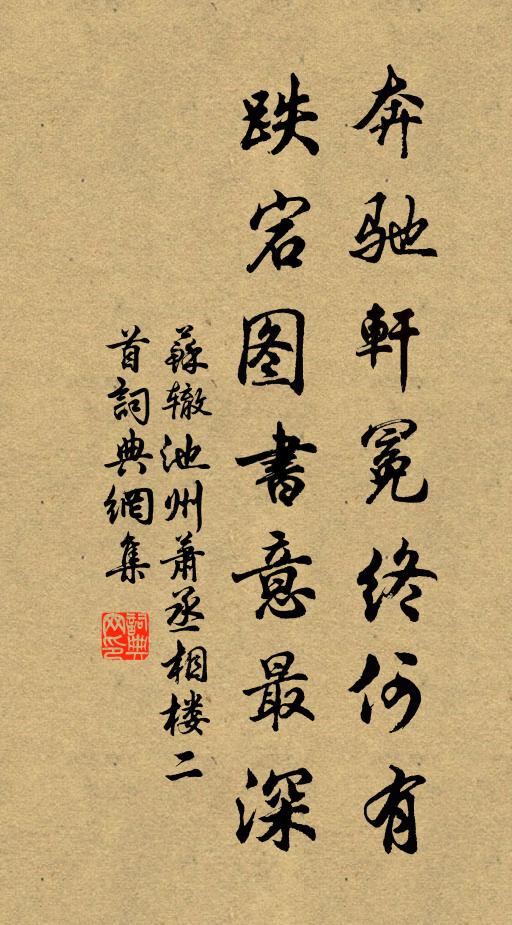 奔驰軒冕终何有
跌宕图書意最深
蘇辙池州萧丞相楼二
首詞典網集
詞典网印